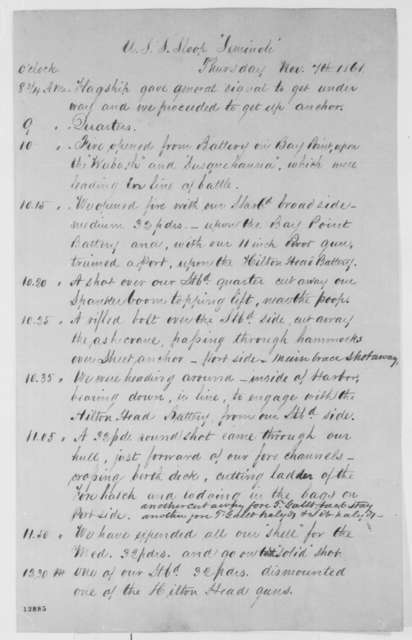 U. S. S. Sloop "Seminole"
O'clock Thursday Nov. 7th 1861
8 3/4 A.M. Flagship gave general signal to get under
way and we proceeded to get up anchor.
9 " Quarters.
10 " Fire opened from Battery on Bay Point, upon
the "Wabash" and "Susquehanna", which were
leading our line of battle.
10.15 " We opened fire with our Starbd broadside -
medium 32 pdrs. - upon the Bay Point
Battery and, with our 11 inch Pivot gun,
trained a Port, upon the Hilton Head Battery.
10.20 " A shot over our Stbd quarter cut away our
Spanker boom topping lift, near the poop.
10.25 " A rifled bolt over the Stbd side, cut away
the ash crane, passing through hammocks
over Sheet anchor - Port side - Main brace shot away
10.35 " We were heading around - inside of Harbor,
bearing down, in line, to engage with the
Hilton Head Battery, from our Stbd side.
11.05 " A 32 pdr. round shot came through our
hull, just forward of our fore channels -
crossing birth deck, cutting ladder of the
Fore hatch and lodging in the bags on
Port side. another cut away fore T. Gallt back stay
another fore T. Gallt halyds
11.50 " We have expended all our "shell" for the
Med. 32 pdrs. and go on with "solid" shot.
12.30 PM One of our Stbd 32 pdrs. dismounted
one of the Hilton Head guns.
12885